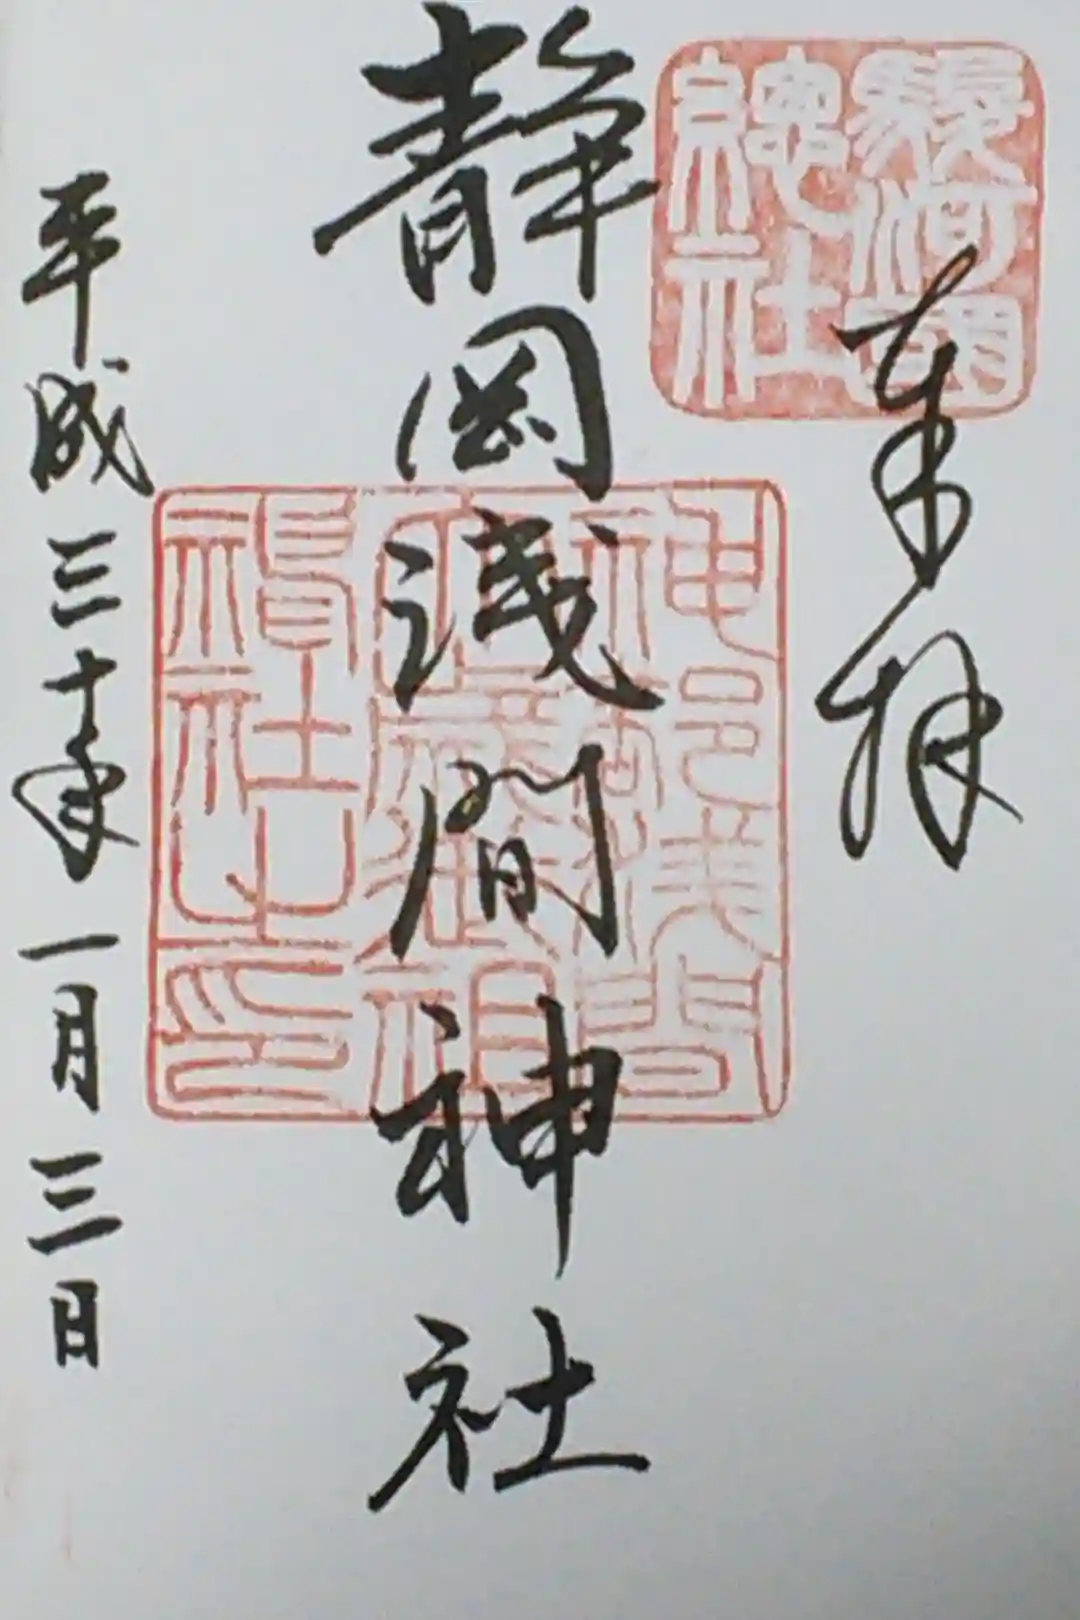 駿河國
總社
奉拝
静岡浅間神社
神部浅間
大歳御祖
神社之印
平成三十年一月三日